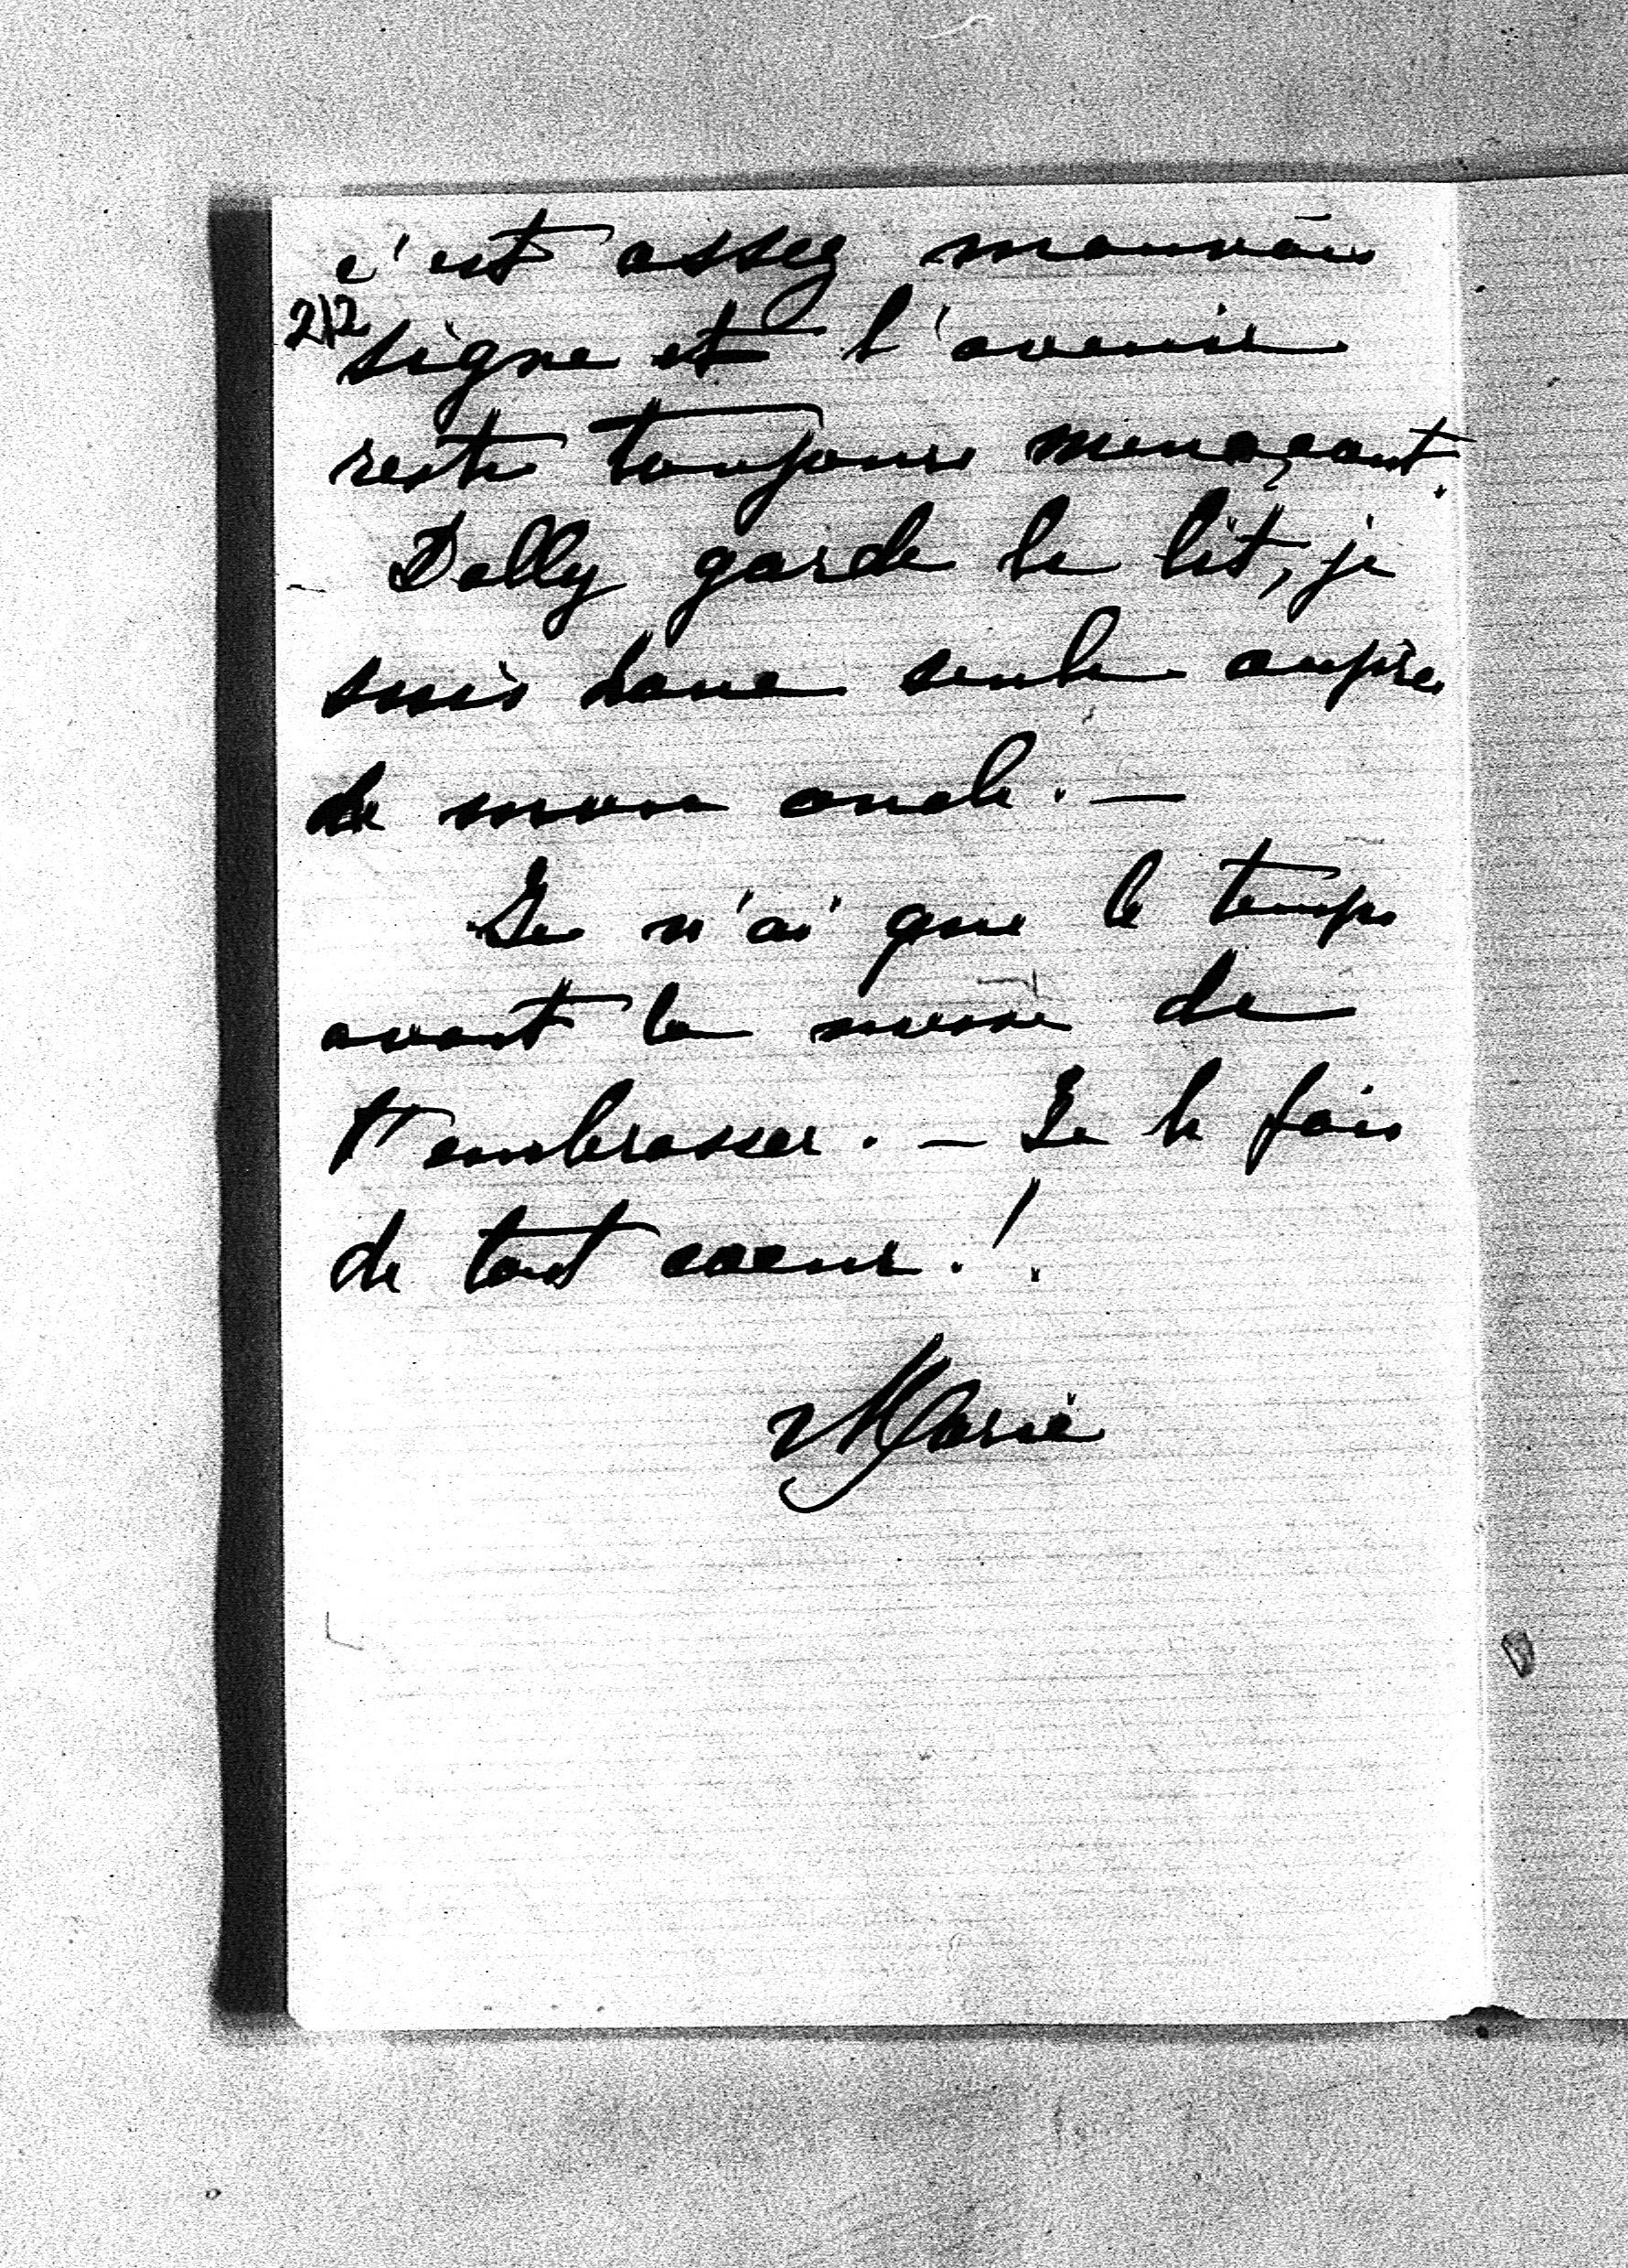 c'est assez mauvais
212
signe et l'avenir
reste toujours menaçant.
Dolly garde le lit, je
suis donc seule auprès
de mon oncle. —
Je n'ai que le temps
avant la messe de
t'embrasser. — Je le fais
de tout coeur.!
Marie